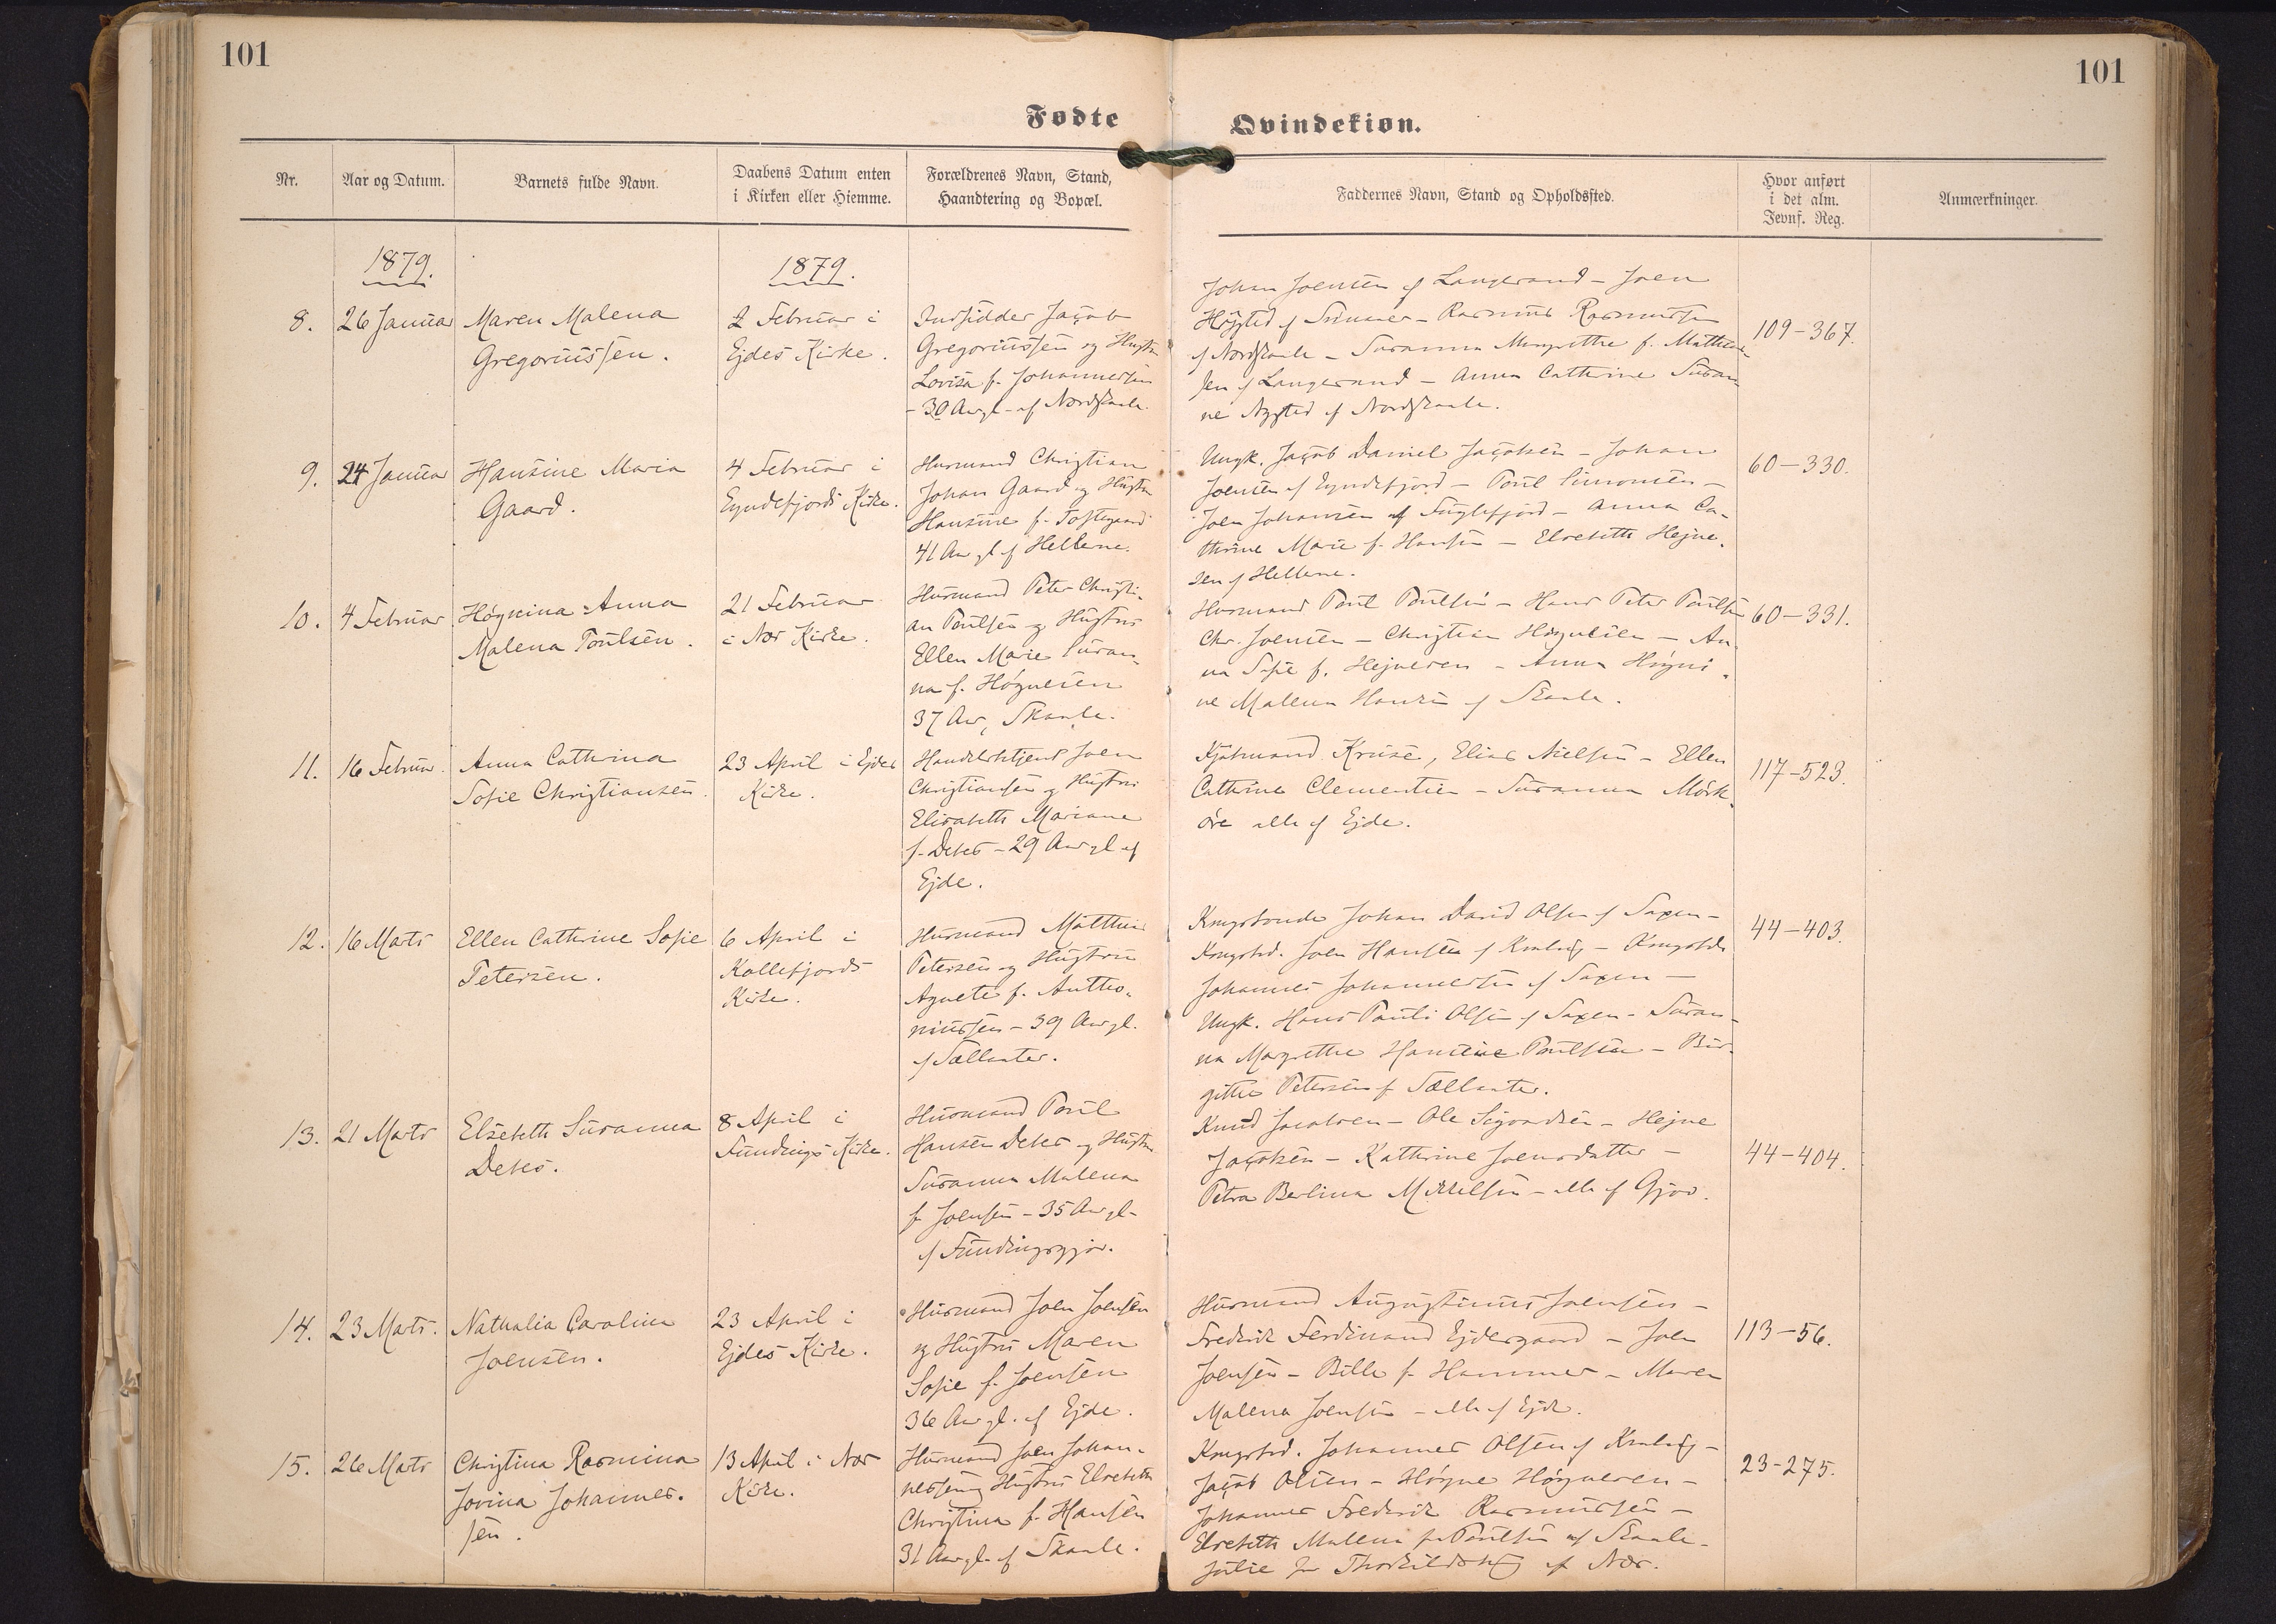 101
101
Fødte
Qvindekiøn.
Nr.
Aar og Datum.
Barnets fulde Navn.
Daabens Datum enten
i Kirken eller Hiemme.
Forældrenes Navn, Stand,
Haandtering og Bopæl.
Faddernes Navn, Stand og Opholdssted.
Hvor anført
i det alm.
Jevnf. Reg.
Anmærkninger.
1879.
1879.
8.
26 Januar
Maren Malena
Gregoriussen.
2 Februar i
Ejdes Kirke.
Indsidder Jacob
Gregoriussen og Hustru
Lovisa f. Johannesen
- 30 Aar gl. af Nordskaale.
Johan Joensen af Langesand - Joen
af Nordskaale - Susanna Margrethe f. Matthie-
sen af Langesand - Anna Cathrine Susan
ne Nysted af Nordskaale.
109-367.
9.
24 Januar
Hansine Maria
Gaard.
4 Februar i
Eyndefjords Kirke.
Husmand Christian
Johan Gaard og Hustru
Hansine f. Toftegaard
41 Aar gl. af Hellerne.
Ungk. Jacob Daniel Jacobsen - Johan
Joensen af Eyndefjord - Poul Simonsen -
Joen Johansen af Fuglefjord - Anna Ca-
thrine Marie f. Hansen - Elsebeth Hejne-
sen af Hellerne.
60-330.
10.
4 Februar
Høgnina Anna
Malena Poulsen.
21 Februar
i Nær Kirke.
Husmand Peter Christi-
an Poulsen og Hustru
Ellen Marie Susan-
na f. Høgnesen
37 Aar, Skaale.
Husmand Poul Poulsen - Hans Peter Poulsen
Chr. Joensen - Christian Høgnesen - An-
na Sofie f. Hejnesen - Anna Høgni-
ne Malena Hansen af Skaale.
60-331.
11.
16 Februar
Anna Cathrina
Sofie Christiansen.
23 April i Ejdes
Kirke.
Handelsbetjent Joen
Christiansen og Hustru
Elisabeth Mariane
f. Debes - 29 Aar gl. af
Ejde.
Kjøbmand Kruse, Elias Nielsen - Ellen
Cathrine Clementsen - Susanna Mørk-
øre alle af Ejde.
117-523.
12.
16 Marts
Ellen Cathrine Sofie
Petersen.
6 April i
Kollefjords
Kirke.
Husmand Matthias
Petersen og Hustru
Agnete f. Antho-
niussen - 39 Aar gl.
af Sællæter.
Kongsbonde Johan David Olsen af Saxen -
Kongsbd. Joen Hansen af Kvalvig -
Johannes Johannessen af Saxen -
Ungk. Hans Pauli Olsen af Saxen - Susan-
na Margrethe Hansine Poulsen - Bir-
gitte Petersen f. Sællæter.
44-403.
13.
21 Marts
Elsebeth Susanna
Debes.
8 April i
Fundings Kirke.
Husmand Poul
Hansen Debes og Hustru
Susanna Malena
f. Joensen - 35 Aar gl.
af Fundingsgjov.
Knud Jacobsen - Ole Sigvardsen - Hejne
Jacobsen - Kathrine Joensdatter -
Petra Berlina Mikkelsen - alle af Gjov.
44-404.
14.
23 Marts.
Nathalia Carolina
Joensen.
23 April i
Ejdes Kirke.
Husmand Joen Joensen
og Hustru Maren
Sofie f. Joensen
36 Aar gl. af Ejde.
Husmand Augustinus Joensen -
Frederik Ferdinand Ejdesgaard - Joen
Joensen - Bille f. Hammer - Maren
Malena Joensen - alle af Ejde.
113-56.
15.
26 Marts
Christina Rasmina
Jovina Johannes-
sen.
13 April i Nær
Kirke.
Husmand Joen Johan-
nessen og Hustru Elsebeth
Christina f. Hansen
31 Aar gl. af Skaale.
Kongsbd. Johannes Olsen af Kvalvig -
Jacob Olsen - Høgne Høgnesen -
Johannes Frederik Rasmussen -
Elsebeth Malena f. Poulsen af Skaale -
Julie f. af Nær.
23-275.